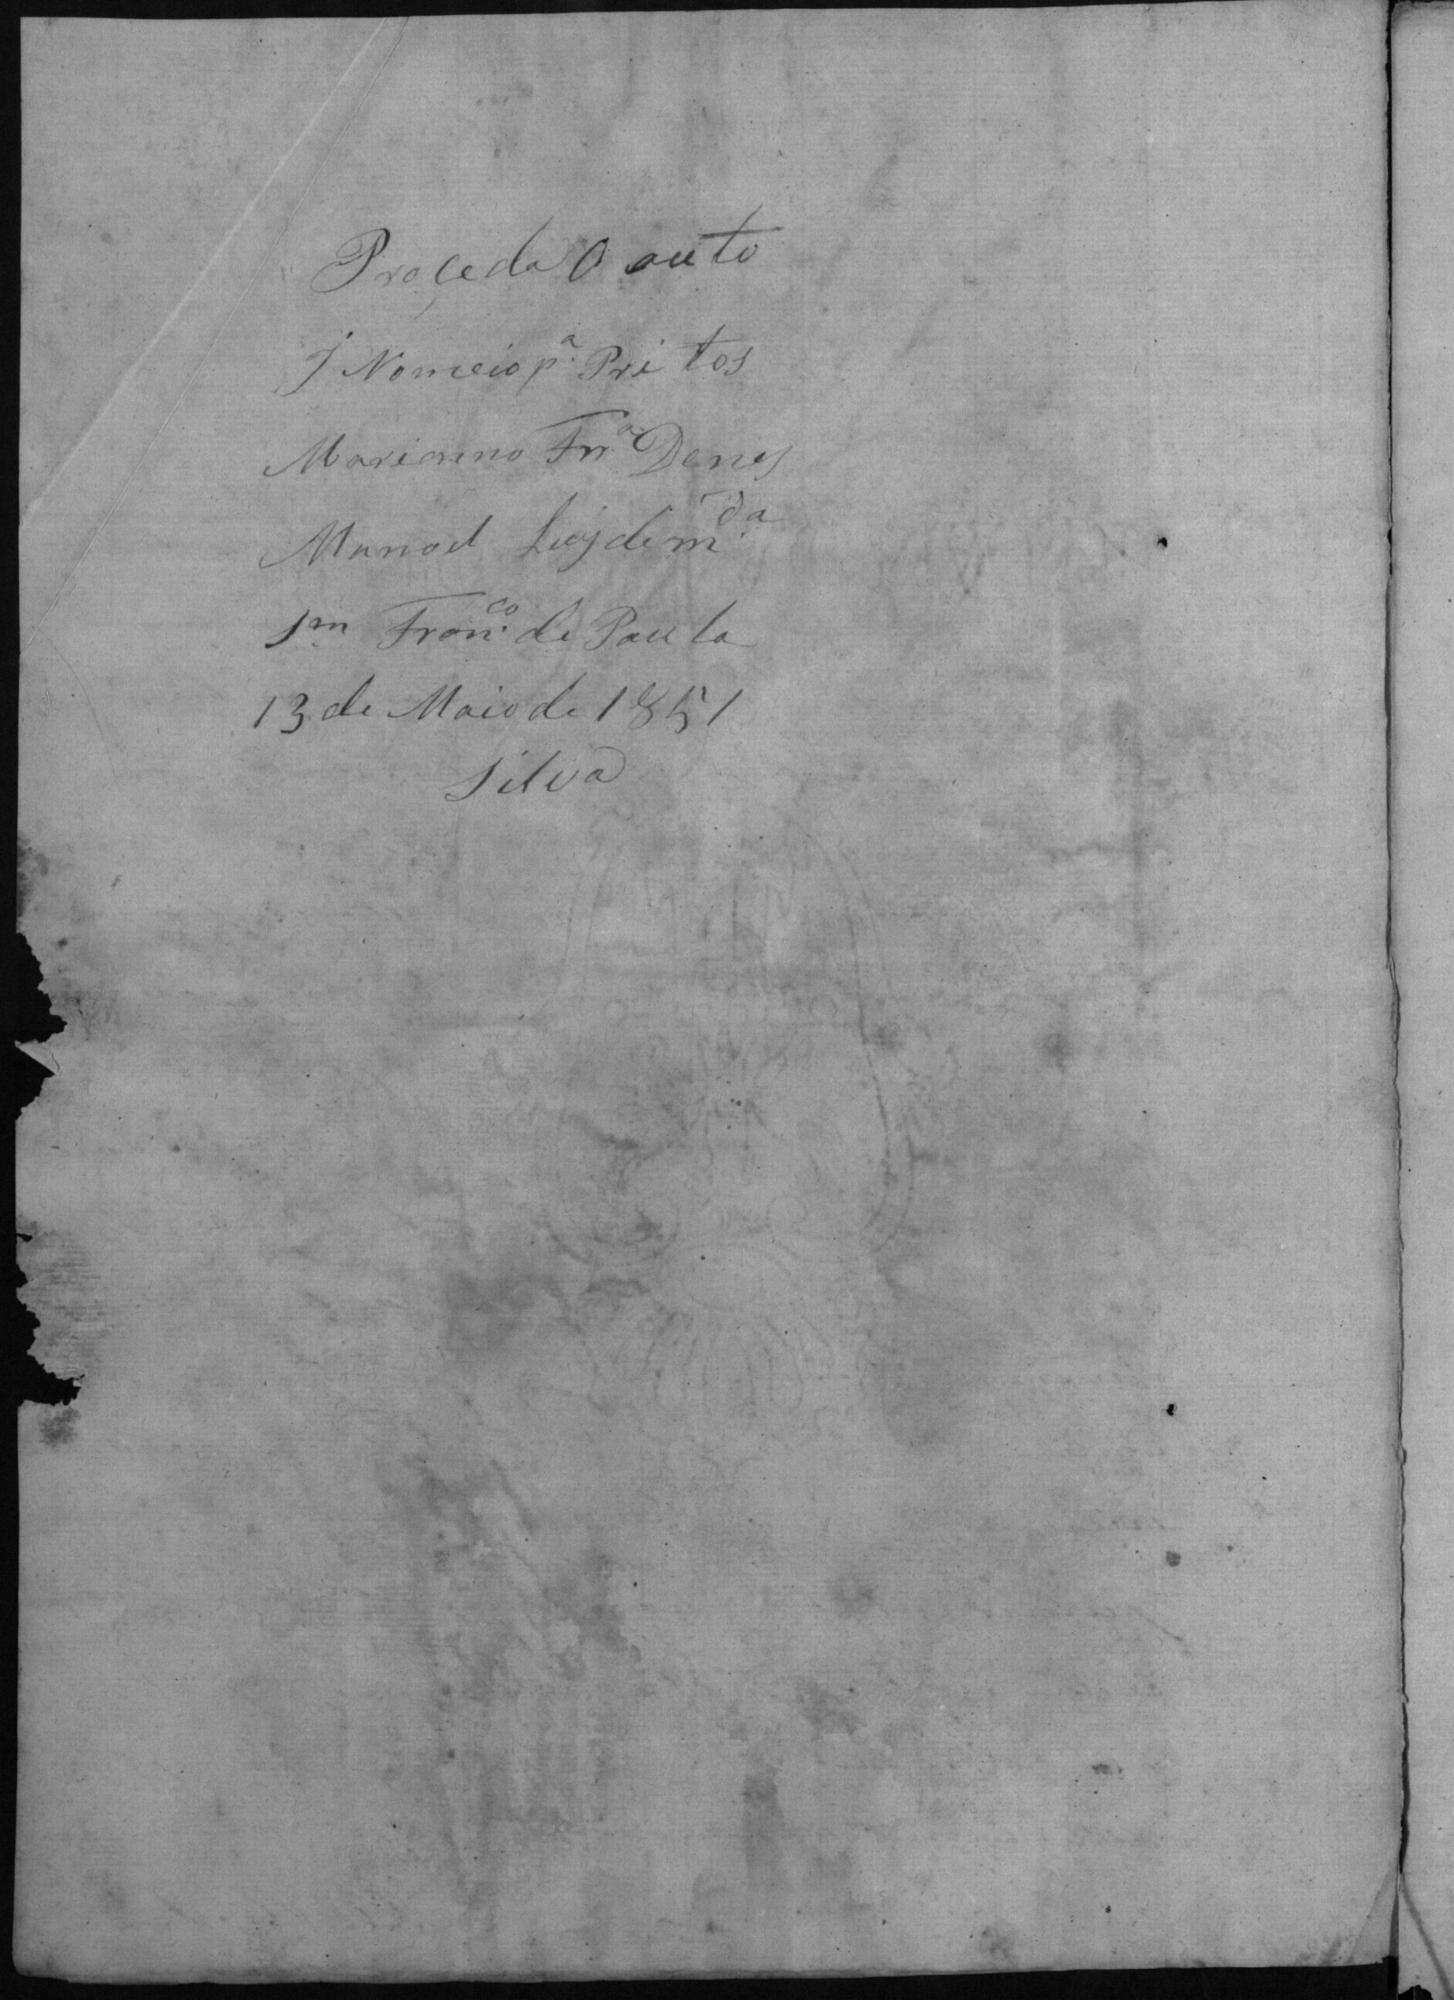 Proçeda O auto
J Nomeio pª Pritos
Marianno Frª Denes
Manoel Luis de mda
Sm Franco de Paula
13 de Maio de 1851
Silva